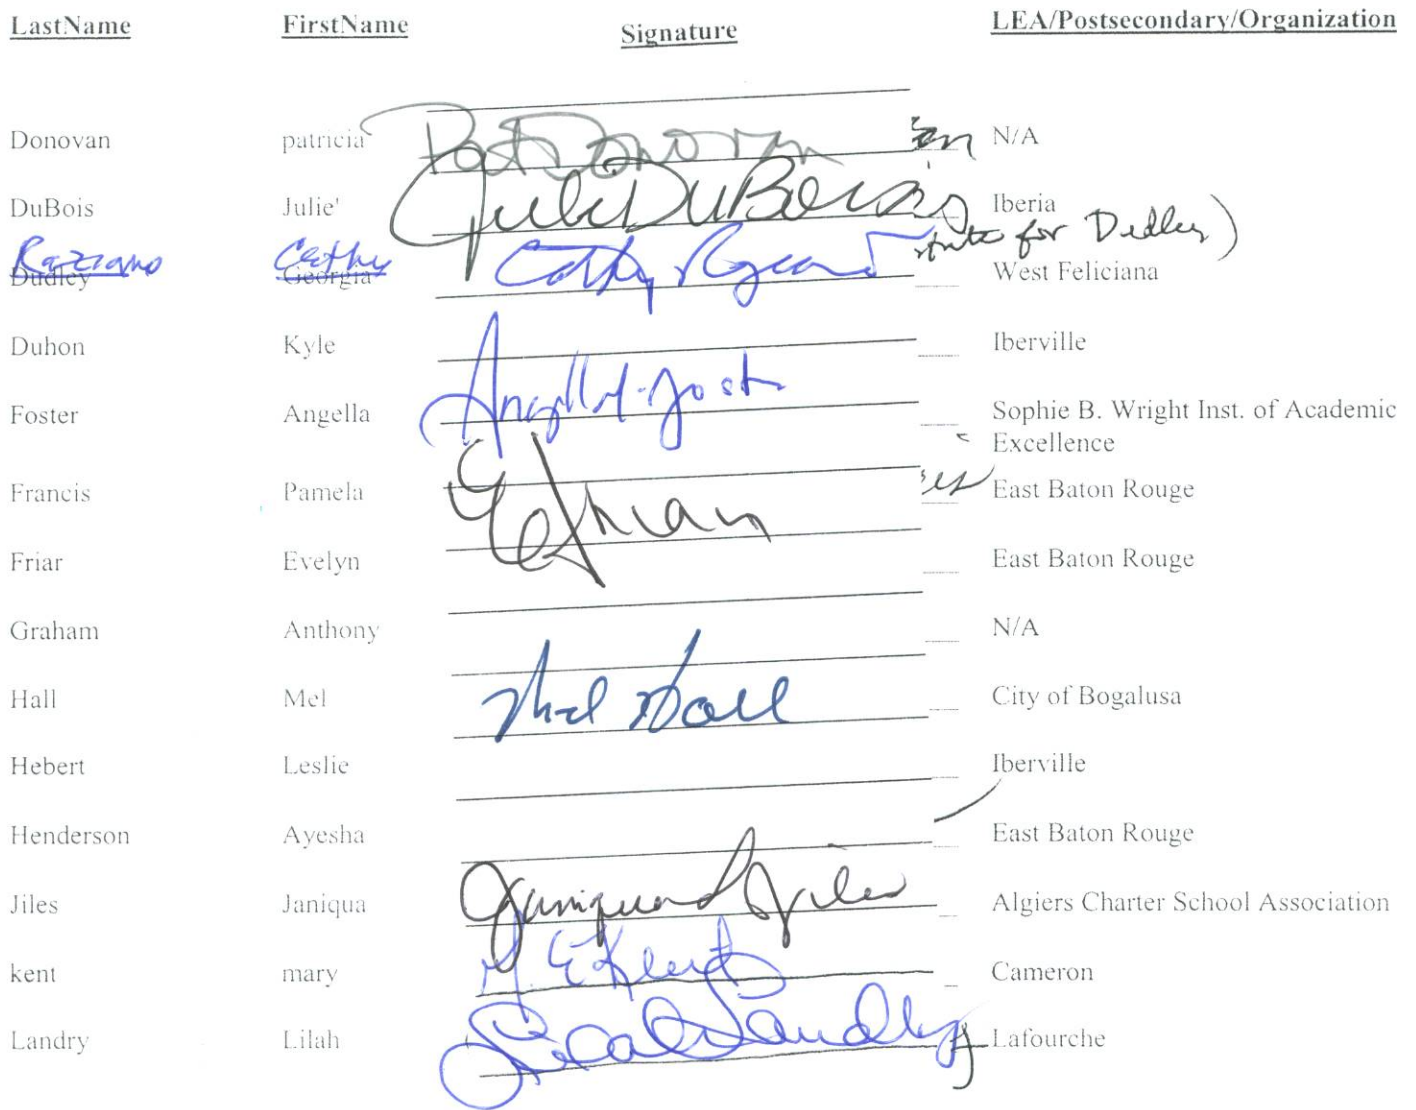 LastName FirstName Signature LEA/Postsecondary/Organization
Donovan patricia Pat Donovan N/A
DuBois Julie' Julie DuBois Iberia
Cathy Cathy for Dudley)
Dudley Georgia West Feliciana
Duhon Kyle Iberville
Foster Angella Sophie B. Wright Inst. of Academic
Excellence
Francis Pamela East Baton Rouge
Friar Evelyn E Friar East Baton Rouge
Graham Anthony N/A
Hall Mel Mel Hall City of Bogalusa
Hebert Leslie Iberville
Henderson Ayesha East Baton Rouge
Jiles Janiqua Janiqua Jiles Algiers Charter School Association
kent mary M. E Kent Cameron
Landry Lilah Lilah Landry Lafourche